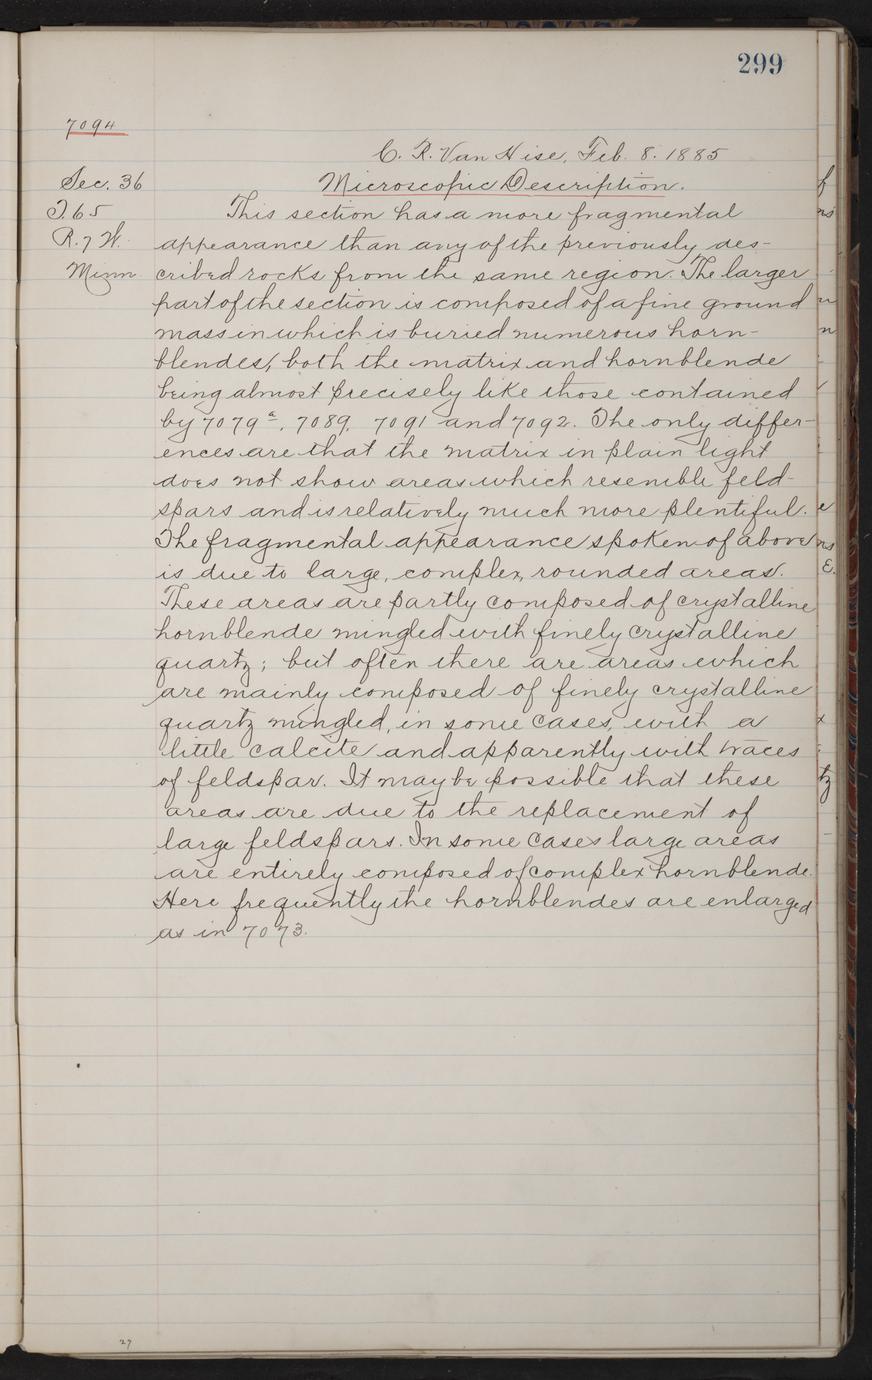 299
7094
C. R. Van Hise, Feb. 8. 1885
Sec. 36
T. 65
R. 7 W.
Minn.
Microscopic Description.
This section has a more fragmental
appearance than any of the previously des-
cribed rocks from the same region. The larger
part of the section is composed of a fine ground
mass in which is buried numerous horn-
blendes, both the matrix and hornblende
being almost precisely like those contained
by 7079a, 7089, 7091 and 7092. The only differ-
ences are that the matrix in plain light
does not show areas which resemble feld-
spars and is relatively much more plentiful.
The fragmental appearance spoken of above
is due to large, complex, rounded areas.
These areas are partly composed of crystalline
hornblende mingled with finely crystalline
quartz; but often there are areas which
are mainly composed of finely crystalline
quartz mingled, in some cases, with a
little calcite and apparently with traces
of feldspar. It may be possible that these
areas are due to the replacement of
large feldspars. In some cases large areas
are entirely composed of complex hornblende.
Here frequently the hornblendes are enlarged
as in 7073.
27